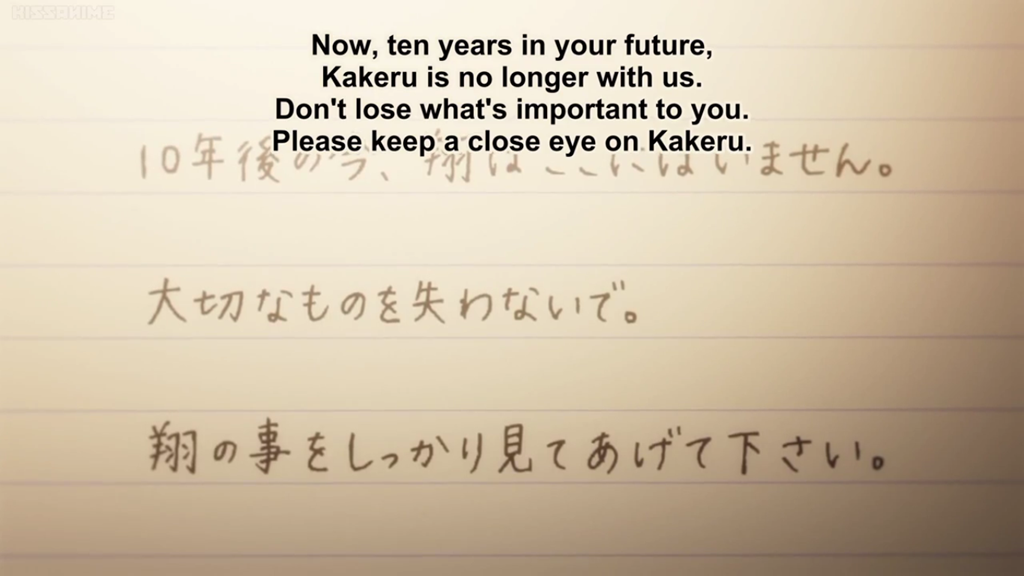 KISSANIME
Now, ten years in your future,
Kakeru is no longer with us.
Don't lose what's important to you.
Please keep a close eye on Kakeru.
10年後の今、翔はここにはいません。
大切なものを失わないで。
翔の事をしっかり見てあげて下さい。